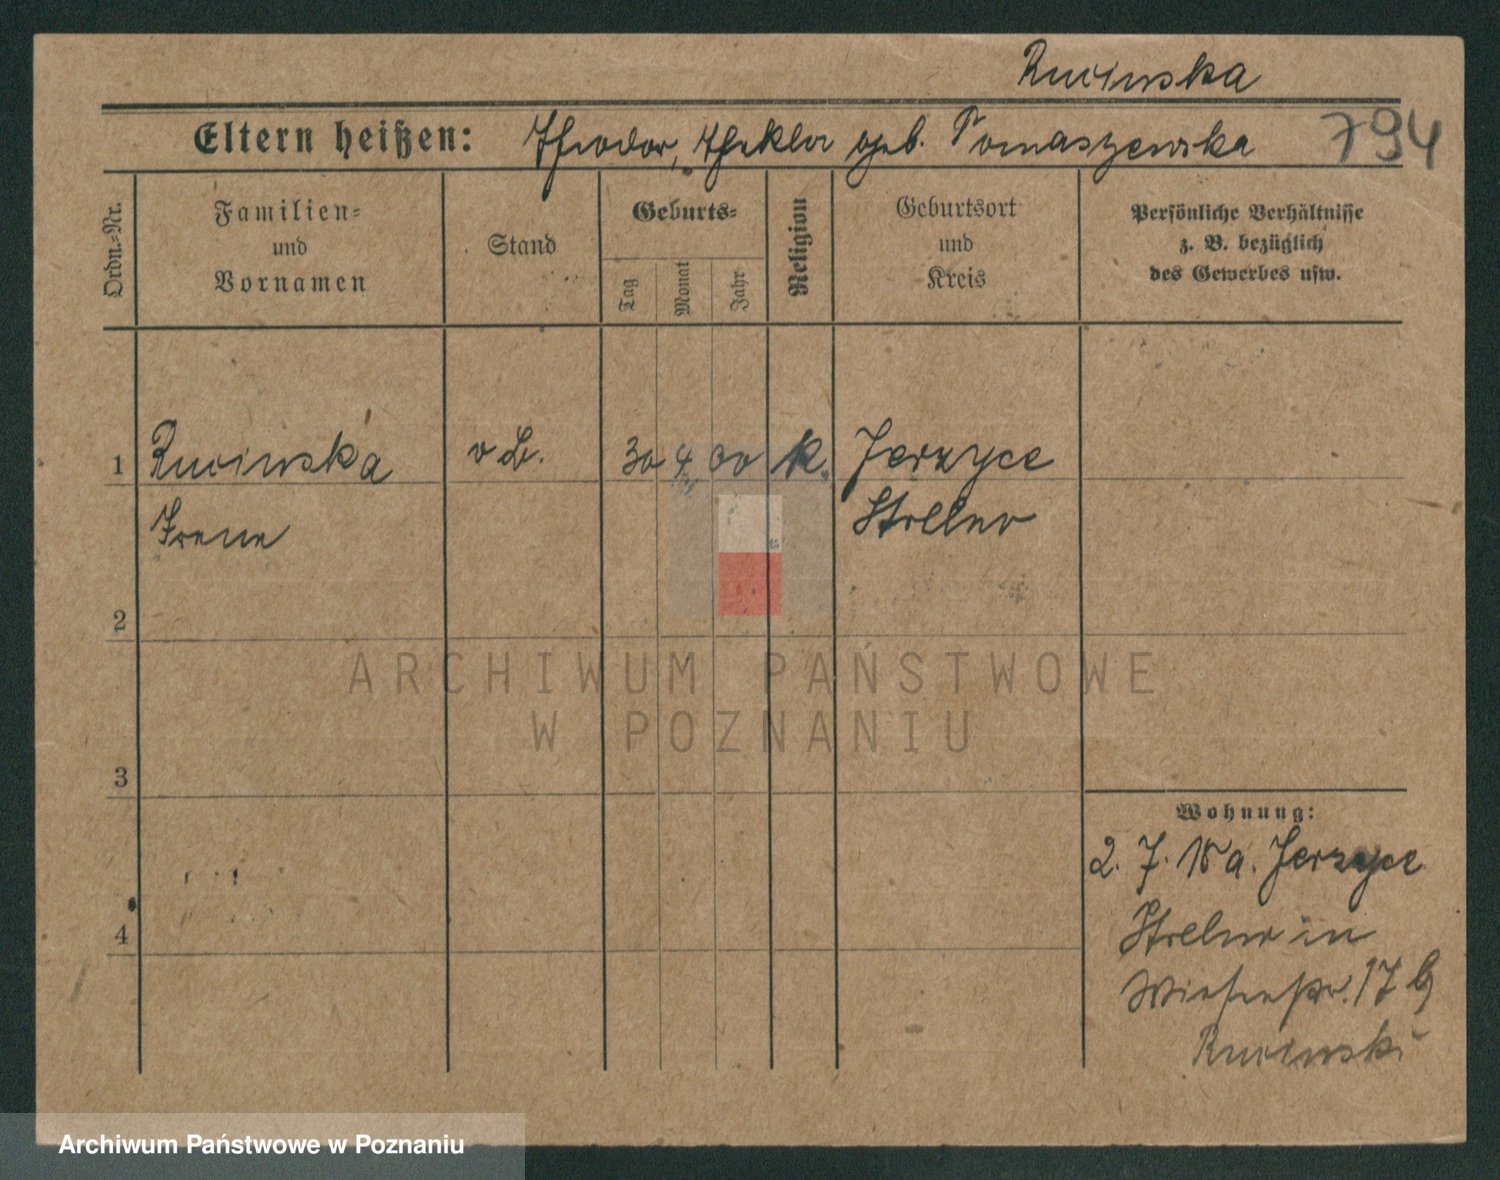 Rucinska
Eltern heißen: Theodor, Thekla geb. Tomaszewska 794
Ordn.-Nr.
Familien-
und
Vornamen
Stand
Geburts-
Tag
Monat
Jahr
Religion
Geburtsort
und
Kreis
Persönliche Verhältnisse
z. B. bezüglich
des Gewerbes usw.
1 Rucinska 30 4 00 k. Jerzyce
Irene Strelno
2
ARCHIWUM PAŃSTWOWE
W POZNANIU
3
Wohnung:
2. 7. 18 a. Jerzyce
4
Strelno in
Wiesenstr. 17 b
Rucinski
Archiwum Państwowe w Poznaniu